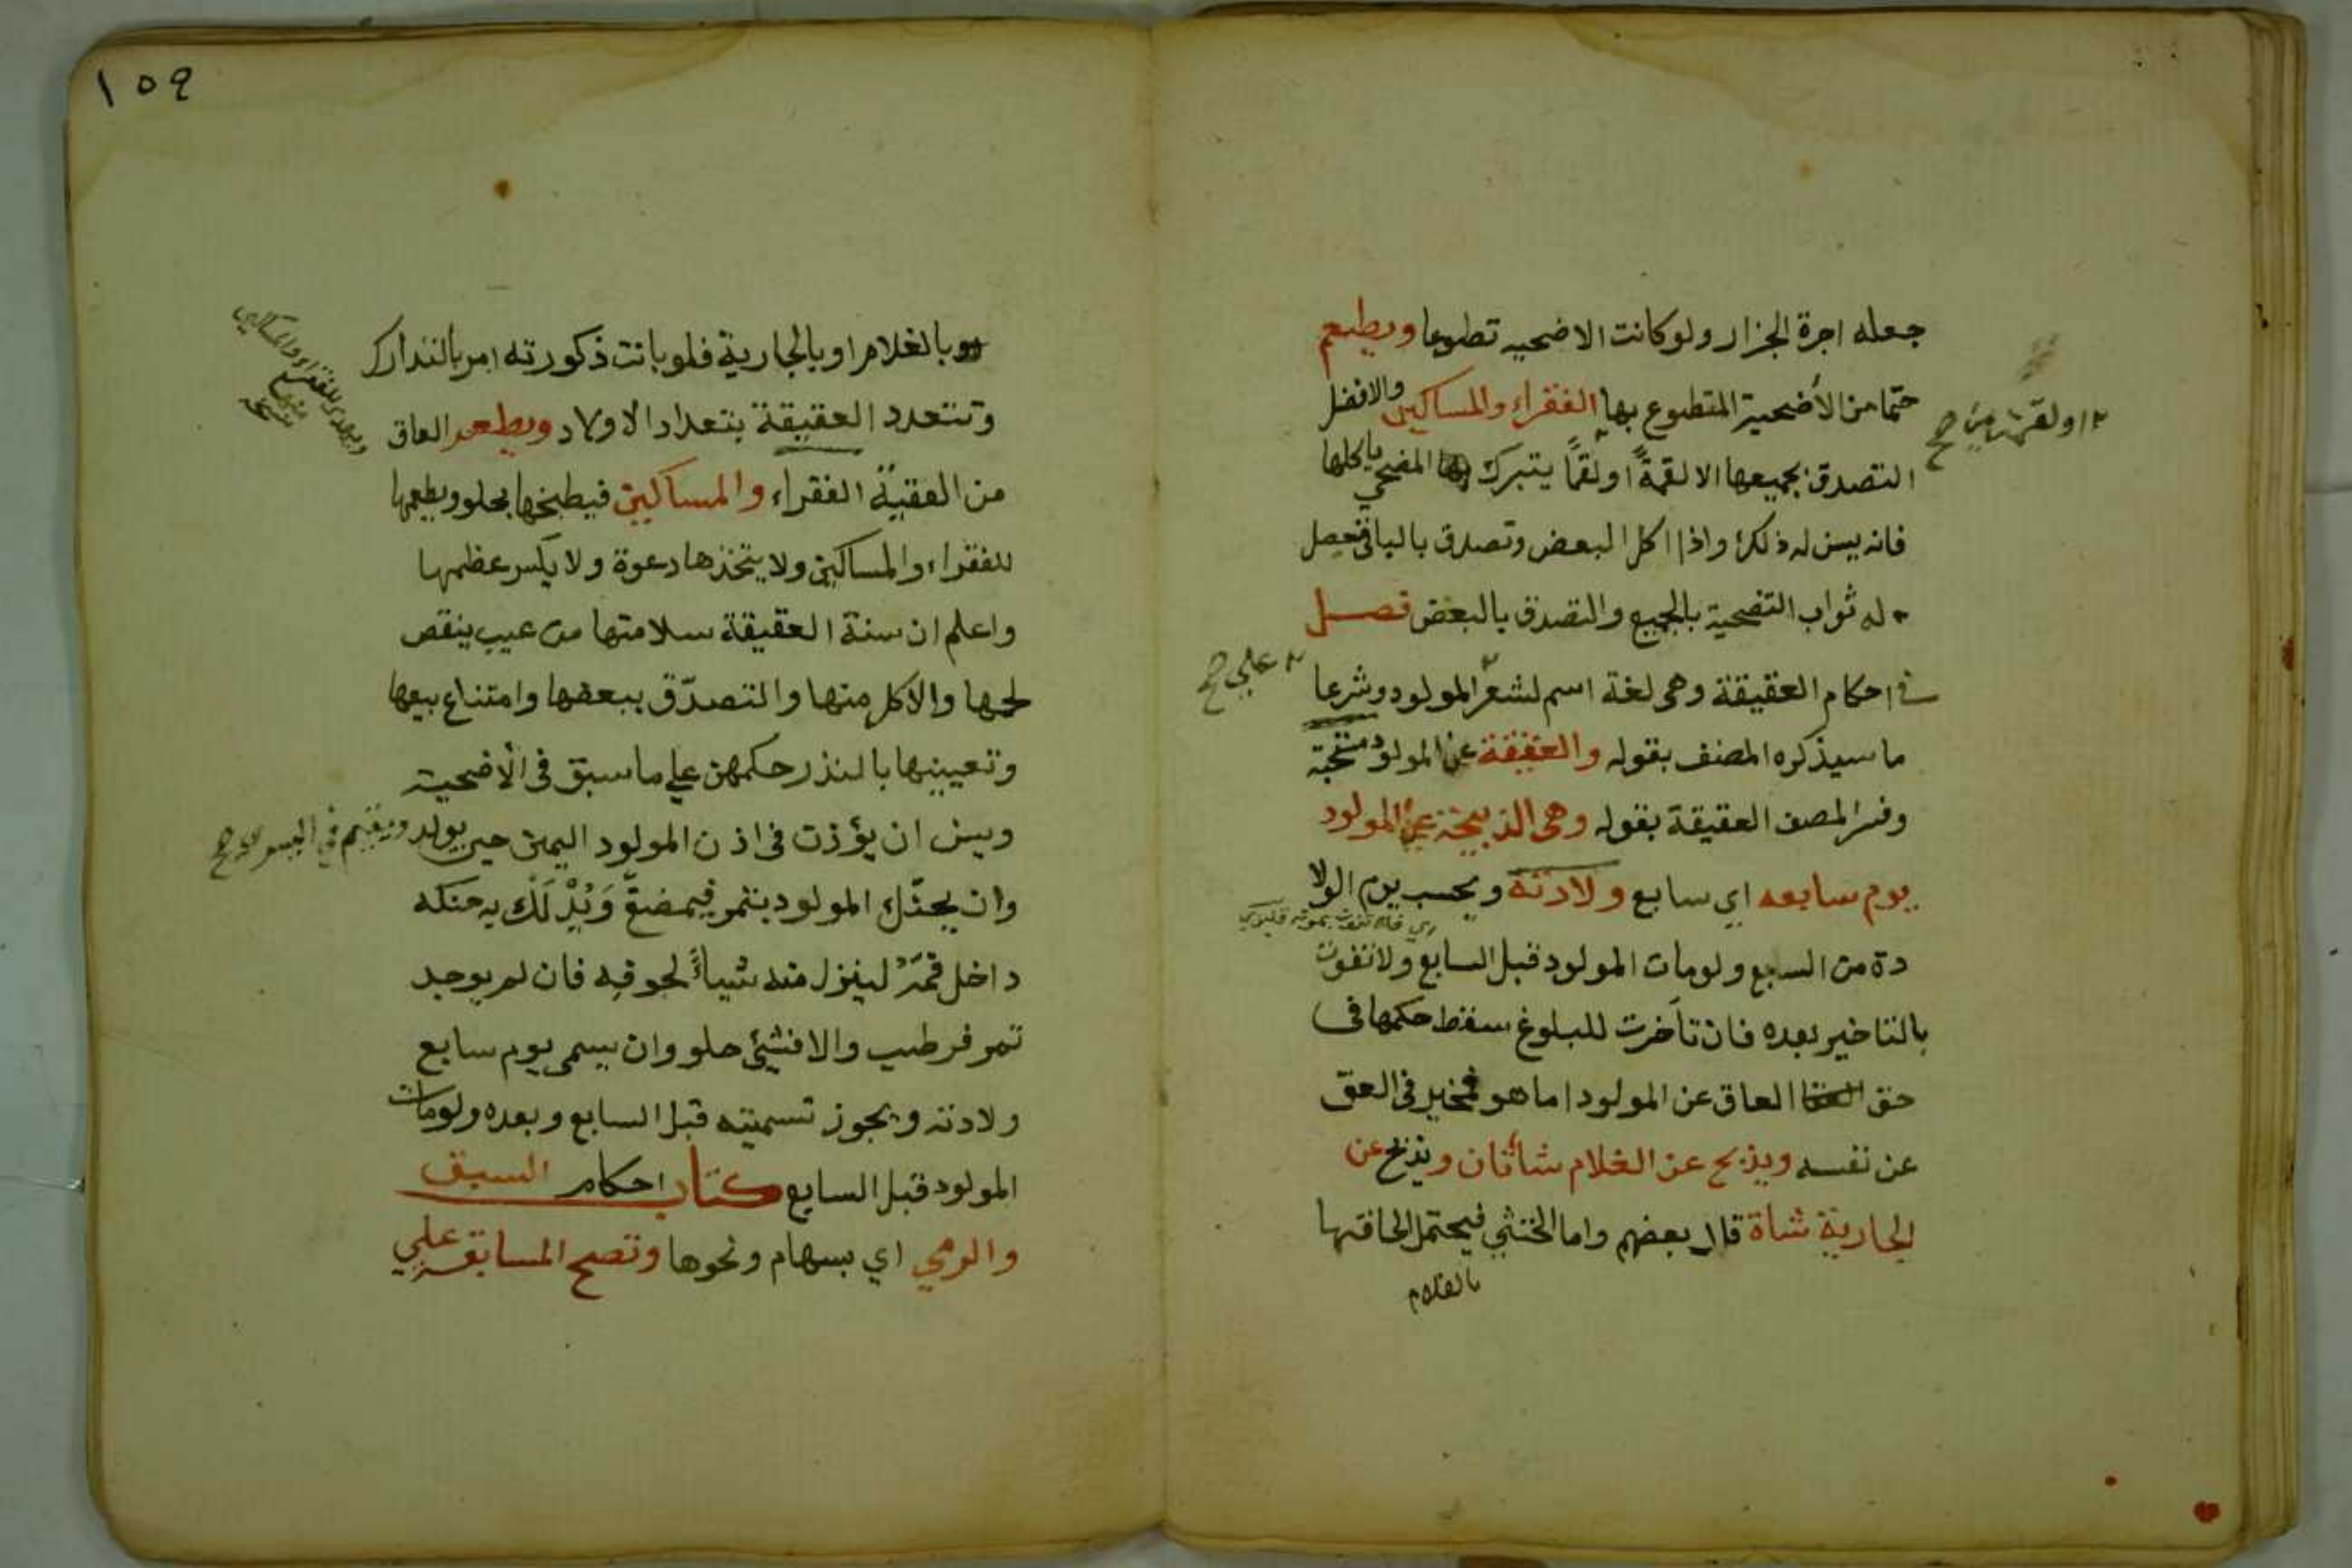 جعله اجرة الجزار ولو كانت الاضحيه تطوعا ويطعم
حتما من الأضحية المتطوع بها الفقراء والمساكين والافضل
التصدق بجميعها الا لقمةً او لقمًا يتبرك المضحي باكلها
فانه يسن له ذلك واذا اكل البعض وتصدق بالباقي حصل
له ثواب التضحية بالجميع والتصدق بالبعض فصل
في احكام العقيقة وهي لغة اسم لشعر المولود وشرعا
على صح
ما سيذكره المصنف بقوله والعقيقة عن المولود مستحبة
وفسر المصنف العقيقة بقوله وهي الذبيحة عن المولود
يوم سابعه اي سابع ولادته ويحسب يوم الولا
دة من السبع ولو مات المولود قبل السابع ولا تفوت
بالتاخير بعده فان تاخرت للبلوغ سقط حكمها في
حق العاق عن المولود اما هو فمخير في العق
عن نفسه ويذبح عن الغلام شاتان ويذبح عن
الجارية شاة قال بعضهم واما الخنثي فيحتمل الحاقها
بالغلام
١٥٩
بالغلام او بالجارية فلو بانت ذكورته امر بالتدارك
وتتعدد العقيقة بتعدد الاولاد ويطعم العاق
من العقيقة الفقراء والمساكين فيطبخها بحلو ويطعمها
للفقراء والمساكين ولا يتخذها دعوة ولا يكسر عظمها
واعلم ان سنة العقيقة سلامتها من عيب ينقص
لحمها والاكل منها والتصدّق ببعضها وامتناع بيعها
وتعيينها بالنذر حكمهن علي ما سبق في الأضحية
ويسن ان يؤذن في اذن المولود اليمني حين يولد ويقيم في اليسرى صح
وان يحنّك المولود بتمر فيمضغ وَيُدْلَك به حنكه
داخل فمه لينزل منه شياً لجوفه فان لم يوجد
تمر فرطب والا فشئ حلو وان يسمي يوم سابع
ولادته ويجوز تسميته قبل السابع وبعده ولو مات
المولود قبل السابع كتاب احكام السبق
والرمي اي بسهام ونحوها وتصح المسابقة علي